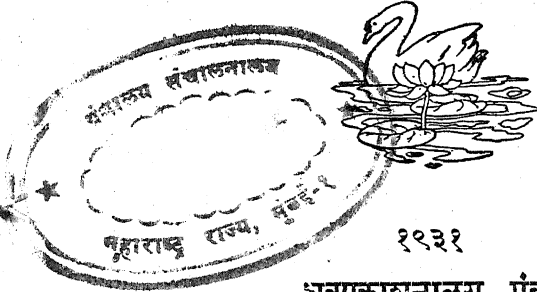 ग्रंथालय संचालनालय
महाराष्ट्र राज्य, मुंबई-१
१९३१